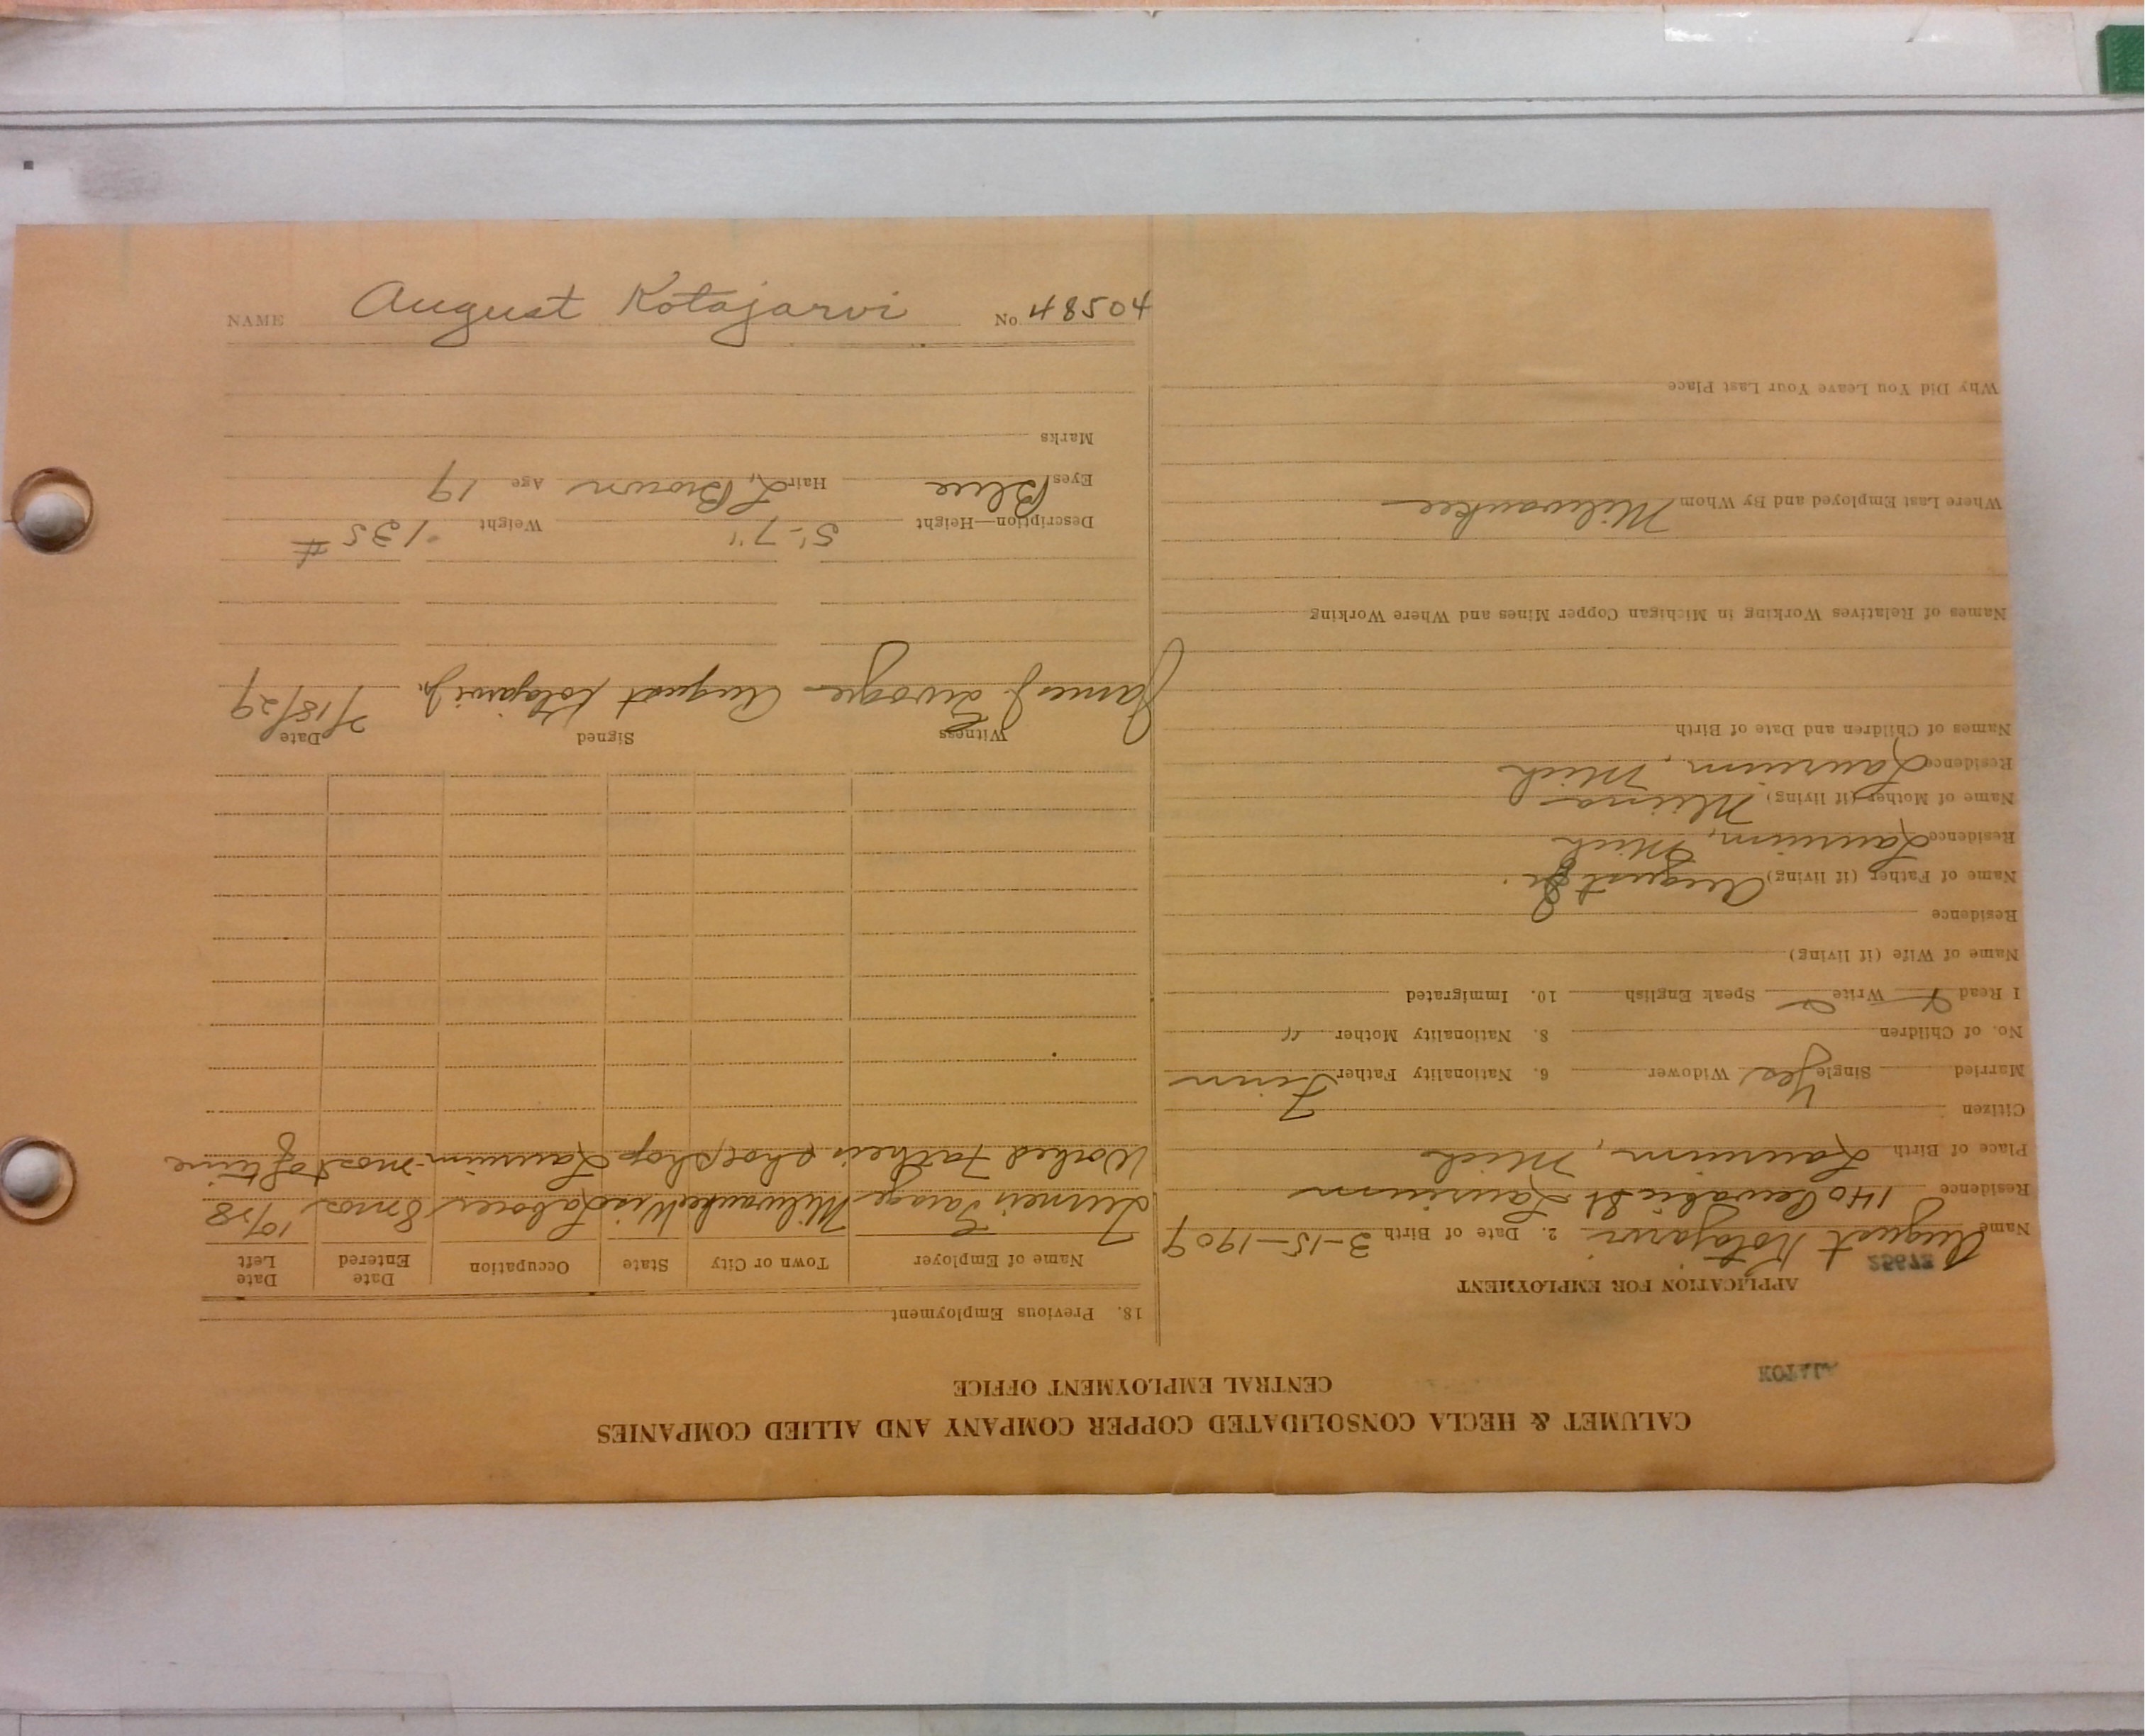 CALUMET & HECLA CONSOLIDATED COPPER COMPANY AND ALLIED COMPANIES
CENTRAL EMPLOYMENT OFFICE
APPLICATION FOR EMPLOYMENT
25672
Name August Kotajarvi 2. Date of Birth 3-15-1909
Residence 140 St Laurium
Place of Birth Laurium, Mich
Citizen
Married Single Yes Widower 6. Nationality Father Finn
No. of Children 8. Nationality Mother "
I Read Write Speak English 10. Immigrated
Name of Wife (if living)
Residence
Name of Father (if living) August Sr.
Residence Laurium, Mich
Name of Mother (if living) Miina
Residence Laurium, Mich
Names of Children and Date of Birth
Names of Relatives Working in Michigan Copper Mines and Where Working
Where Last Employed and By Whom Milwaukee
Why Did You Leave Your Last Place
18. Previous Employment
Name of Employer Town or City State Occupation Date Entered Date Left
Garage Milwaukee Wis Laborer 8 mos 10/28
Worked Father's shoe shop Laurium - most of time
Witness Signed Date
James J. August Kotajarvi Jr. 7/18/29
Description—Height 5'-7" Weight 135 #
Eyes Blue Hair L. Brown Age 19
Marks
NAME August Kotajarvi No 48504